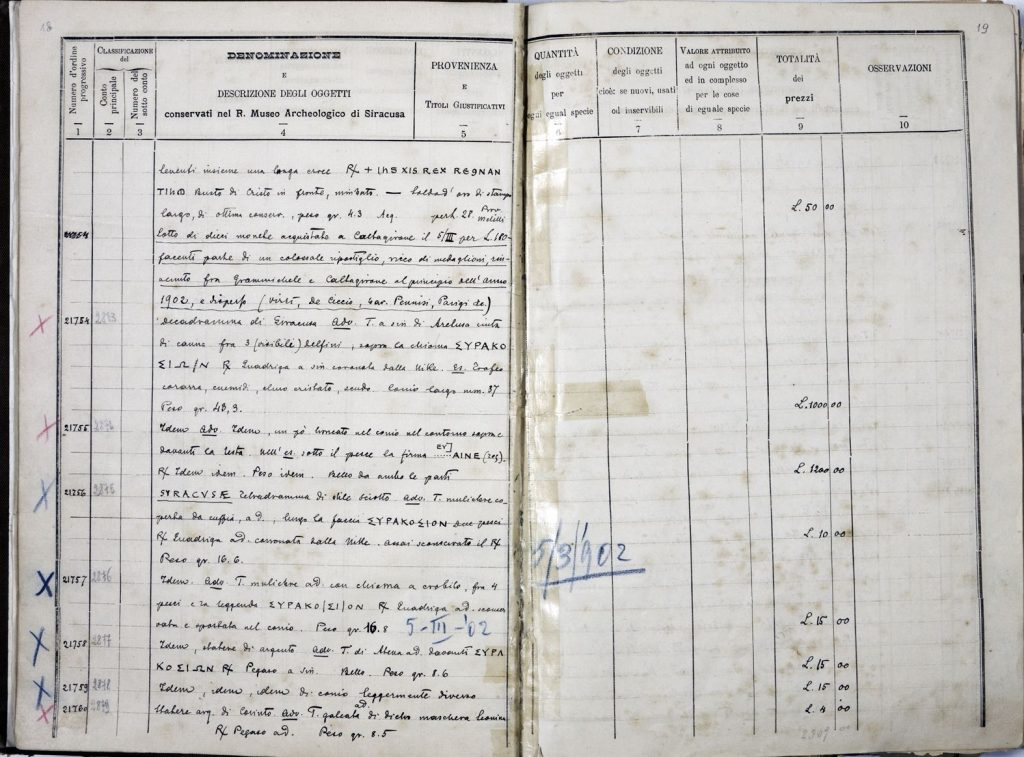 18
19
Numero d'ordine progressivo
CLASSIFICAZIONE del
Conto principale
Numero del sotto conto
DENOMINAZIONE
E
DESCRIZIONE DEGLI OGGETTI
conservati nel R. Museo Archeologico di Siracusa
PROVENIENZA
E
TITOLI GIUSTIFICATIVI
QUANTITÀ
degli oggetti
per
ogni egual specie
CONDIZIONE
degli oggetti
cioè: se nuovi, usati
od inservibili
VALORE ATTRIBUITO
ad ogni oggetto
ed in complesso
per le cose
di eguale specie
TOTALITÀ
dei
prezzi
OSSERVAZIONI
1 2 3 4 5 6 7 8 9 10
insieme una longa croce R/ + IHS XIS REX REGNAN
Busto di Cristo in fronte, nimbato. —
largo, di ottima conserv., peso gr. 4.3 Acq. L. 50 00
Lotto di dieci monete acquistato a Caltagirone il 5/III per L. 180-
facenti parte di un colossale ripostiglio, ricco di medaglioni, rin-
venuto fra Grammichele e Caltagirone al principio dell'anno
1902, e disperso (Virzì, de Ciccio, Car. Pennisi, Parigi etc.)
21754 2873 decadramma di Siracusa Adv. T. a sin di Aretusa cinta
di canne fra 3 (visibili) delfini, sopra la chioma ΣΥΡΑΚΟ
ΣΙΩ/Ν R/ Quadriga a sin coronata dalla Nike. es. Trofeo
corazza, cnemidi, elmo cristato, scudo. Conio largo mm. 37
Peso gr. 43,3. L. 1000 00
21755 2874 Idem Adv. Idem, un pò troncato nel conio nel contorno sopra e
davanti la testa. nell'es. sotto il pesce la firma ΕΥ]ΑΙΝΕ
R/ Idem idem. Peso idem. Bello da ambo le parti L. 1200 00
21756 2875 SYRACVSÆ Tetradramma di stile sciolto. adv. T. muliebre co-
perta da cuffia, a d., lungo la faccia ΣΥΡΑΚΟΣΙΟΝ due pesci
R/ Quadriga ad. coronata dalla Nike. assai sconservato il R/
Peso gr. 16.6. L. 10 00
5/3/902
21757 2876 Idem. Adv. T. muliebre ad. con chioma a crobilo, fra 4
pesci e la leggenda ΣΥΡΑΚΟ/ΣΙ/ΟΝ R/ Quadriga ad. sconser
vata e spostata nel conio. Peso gr. 16.8 5-III-'02 L. 15 00
21758 2877 Idem, statere di argento Adv. T. di Atena ad. davanti ΣΥΡΑ
ΚΟΣΙΩΝ R/ Pegaso a sin. Bello. Peso gr. 8.6 L. 15 00
21759 2878 Idem, idem, idem di conio leggermente diverso L. 15 00
21760 2879 Statere arg. di Corinto. Adv. T. galeata ad. di dietro maschera leonina
R/ Pegaso ad. Peso gr. 8.5 L. 4 00